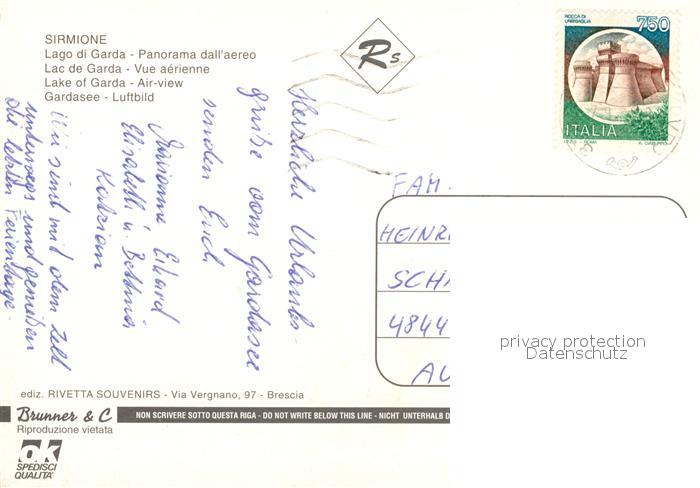 SIRMIONE
Lago di Garda - Panorama dall'aereo
Lac de Garda - Vue aérienne
Lake of Garda - Air-view
Gardasee - Luftbild
Rs
ROCCA DI
URBISAGLIA
750
ITALIA
I.P.Z.S. - ROMA
Herzliche Urlaubs-
grüße vom Gardasee
senden Euch
Marianne
Elisabeth u. Bettina
Wir sind mit dem Zelt
unterwegs und genießen
die letzten Ferientage.
FAM.
HEINR
SCH
4844
AU
privacy protection
Datenschutz
ediz. RIVETTA SOUVENIRS - Via Vergnano, 97 - Brescia
Brunner & C
NON SCRIVERE SOTTO QUESTA RIGA - DO NOT WRITE BELOW THIS LINE - NICHT UNTERHALB D
Riproduzione vietata
ok
SPEDISCI
QUALITA'